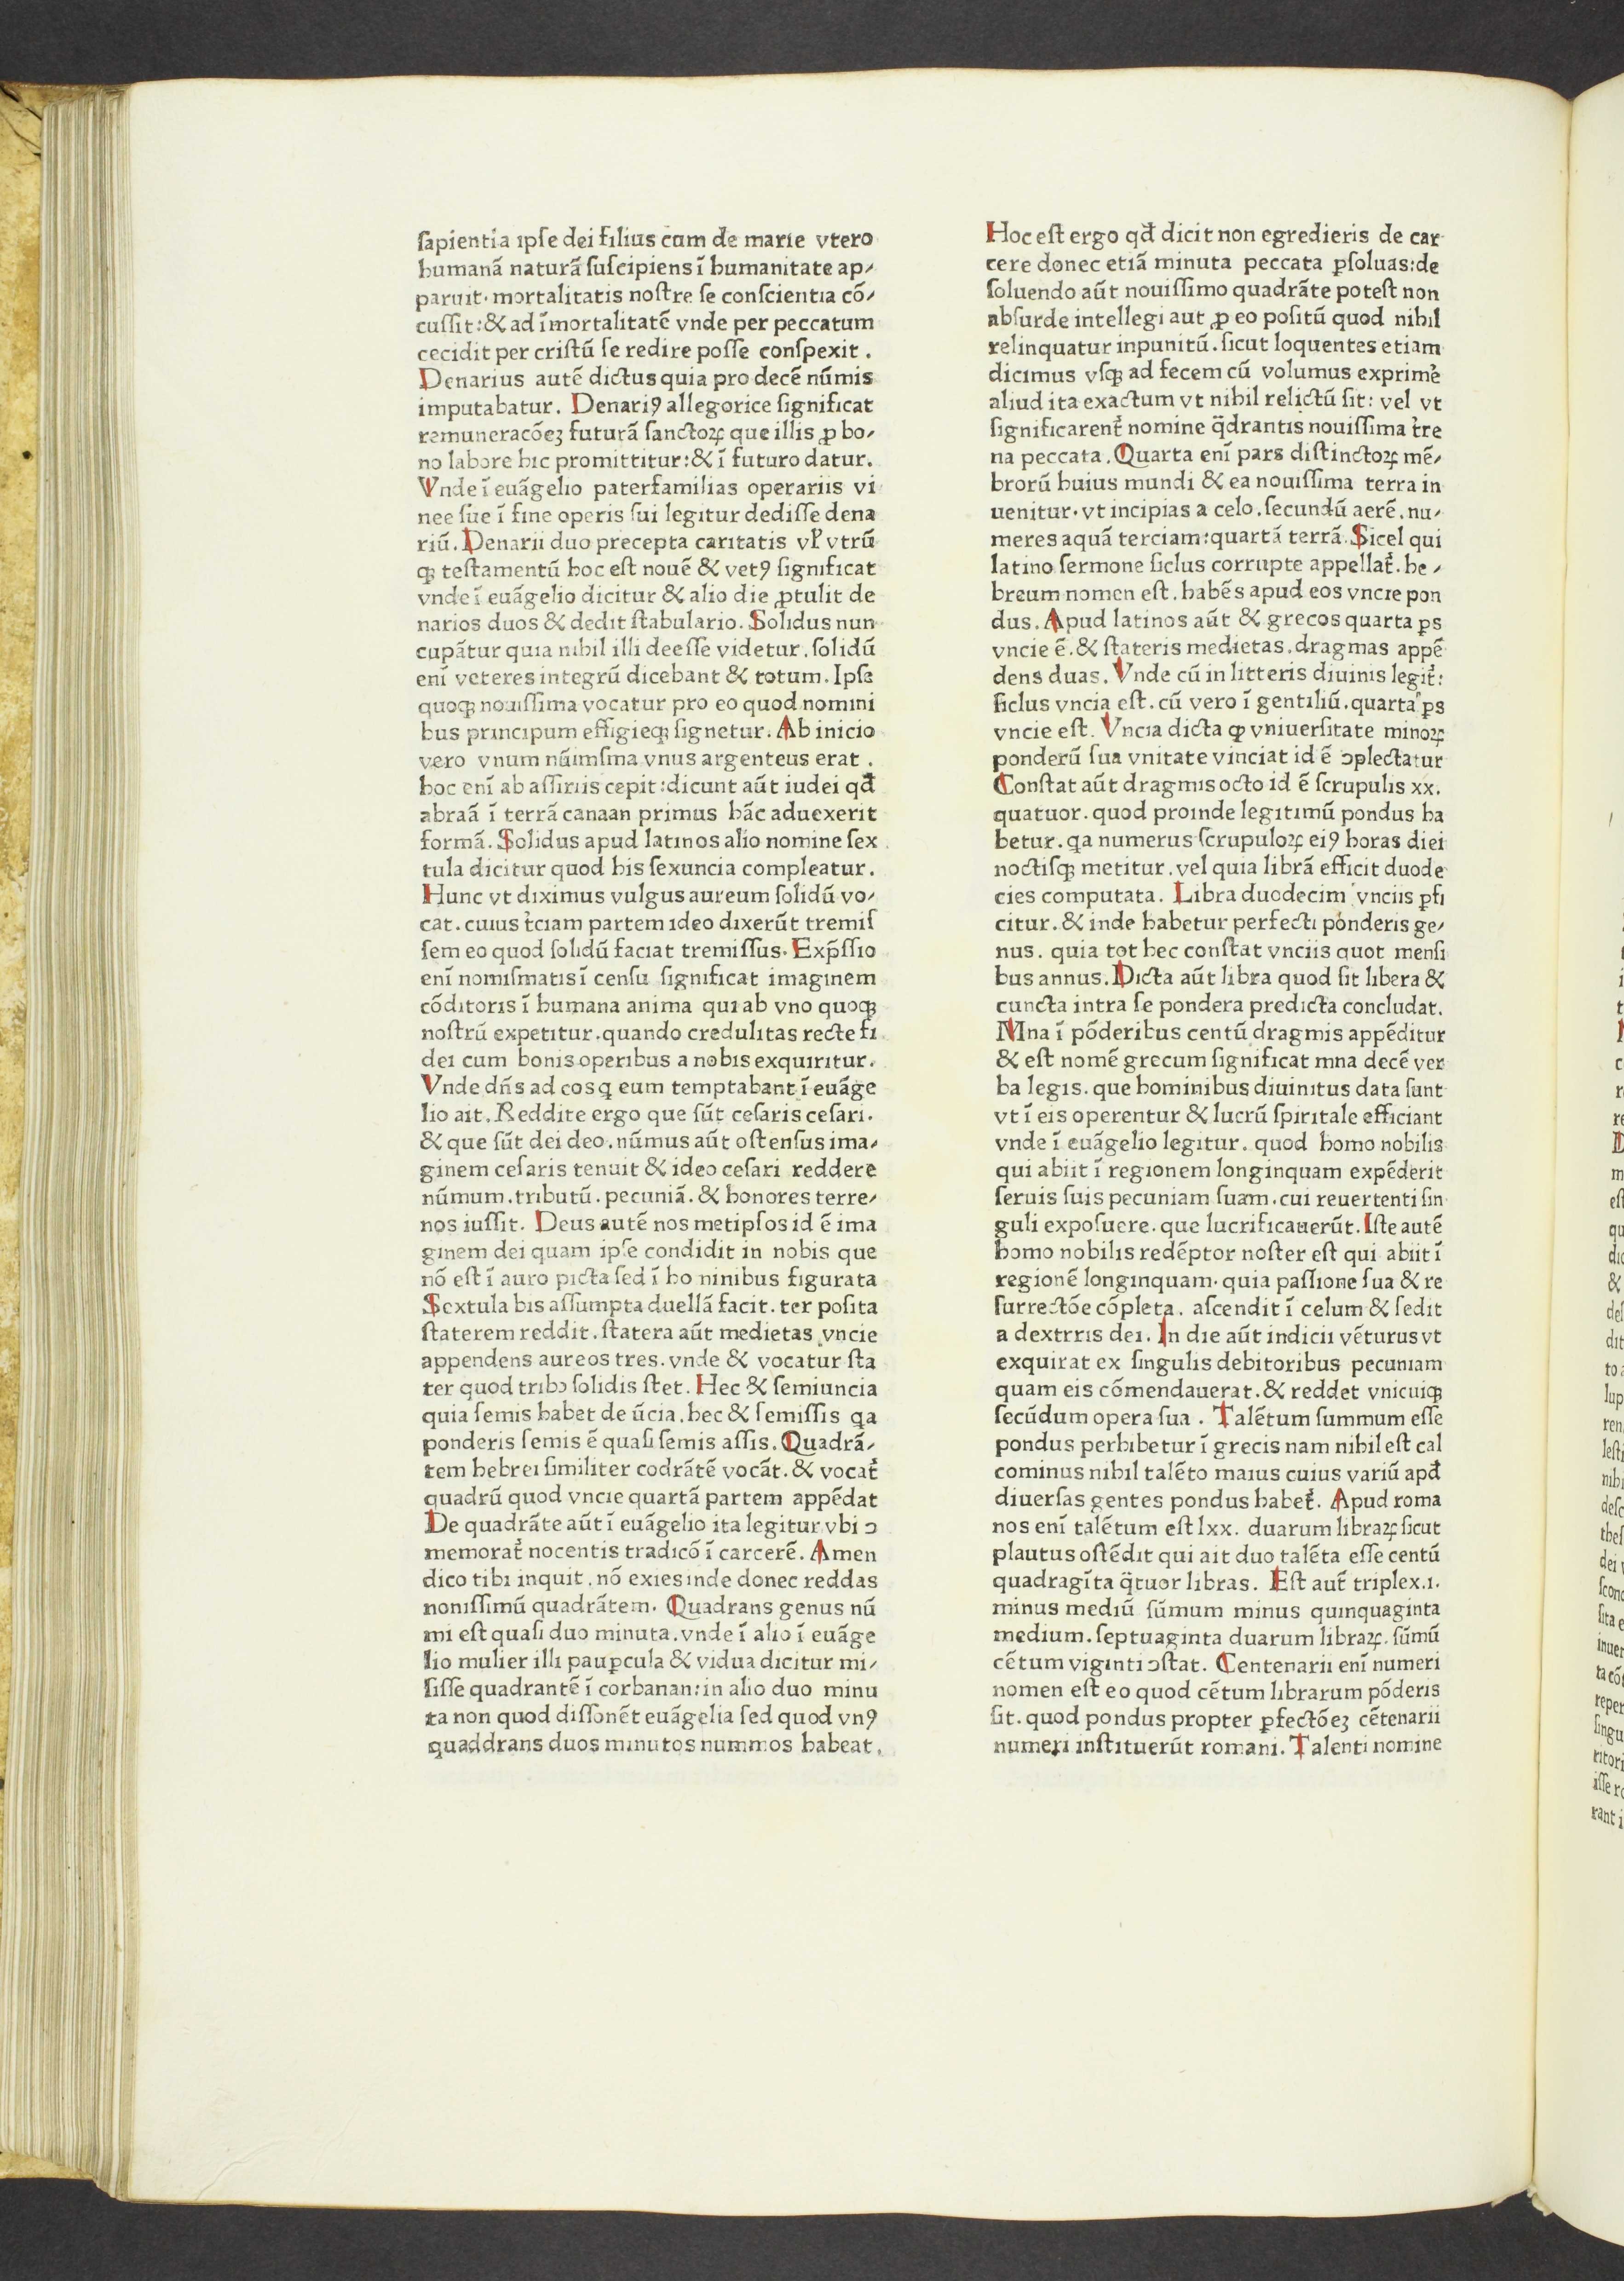 sapientia ipse dei filius cum de marie vtero
humanā naturā suscipiens ī humanitate ap⸗
paruit. mortalitatis nostre se conscientia cō⸗
cussit: & ad īmortalitatē vnde per peccatum
cecidit per cristū se redire posse conspexit .
Denarius autē dictus quia pro decē nūmis
imputabatur. Denariꝯ allegorice significat
remuneracōeꝫ futurā sanctoꝝ que illis ꝓ bo⸗
no labore hic promittitur: & ī futuro datur.
Vnde ī euāgelio paterfamilias operariis vi
nee sue ī fine operis sui legitur dedisse dena
riū. Denarii duo precepta caritatis vl̓ vtrū
qꝫ testamentū hoc est nouē & vetꝯ significat
vnde ī euāgelio dicitur & alio die ꝓtulit de
narios duos & dedit stabulario. Solidus nun
cupātur quia nihil illi deesse videtur. solidū
enī veteres integrū dicebant & totum. Ipse
quoqꝫ nouissima vocatur pro eo quod nomini
bus principum effigieqꝫ signetur. Ab inicio
vero vnum nūimsma vnus argenteus erat .
hoc enī ab assiriis cepit: dicunt aūt iudei qđ
abraā ī terrā canaan primus hāc aduexerit
formā. Solidus apud latinos alio nomine sex
tula dicitur quod his sexuncia compleatur.
Hunc vt diximus vulgus aureum solidū vo⸗
cat. cuius t̓ciam partem ideo dixerūt tremis
sem eo quod solidū faciat tremissus. Exp̄ssio
enī nomismatis ī censu significat imaginem
cōditoris ī humana anima qui ab vno quoqꝫ
nostrū expetitur. quando credulitas recte fi
dei cum bonis operibus a nobis exquiritur.
Vnde dn̄s ad eos q eum temptabant ī euāge
lio ait. Reddite ergo que sūt cesaris cesari.
& que sūt dei deo. nūmus aūt ostensus ima⸗
ginem cesaris tenuit & ideo cesari reddere
nūmum. tributū. pecuniā. & honores terre⸗
nos iussit. Deus autē nos metipsos id ē ima
ginem dei quam ipse condidit in nobis que
nō est ī auro picta sed ī ho ninibus figurata
Sextula bis assumpta duellā facit. ter posita
staterem reddit. statera aūt medietas vncie
appendens aureos tres. vnde & vocatur sta
ter quod tribꝰ solidis stet. Hec & semiuncia
quia semis habet de ūcia. hec & semissis qa
ponderis semis ē quasi semis assis. Quadrā⸗
tem hebrei similiter codrātē vocāt. & vocat̓
quadrū quod vncie quartā partem appēdat
De quadrāte aūt ī euāgelio ita legitur vbi ↄ
memorat̓ nocentis tradicō ī carcerē. Amen
dico tibi inquit. nō exies inde donec reddas
nonissimū quadrātem. Quadrans genus nū
mi est quasi duo minuta. vnde ī alio ī euāge
lio mulier illi pauꝑcula & vidua dicitur mi⸗
sisse quadrantē ī corbanan: in alio duo minu
ta non quod dissonēt euāgelia sed quod vnꝯ
quaddrans duos minutos nummos habeat.
Hoc est ergo qđ dicit non egredieris de car
cere donec etiā minuta peccata ꝑsoluas: de
soluendo aūt nouissimo quadrāte potest non
absurde intellegi aut ꝓ eo positū quod nihil
relinquatur inpunitū. sicut loquentes etiam
dicimus vsqꝫ ad fecem cū volumus exprim̓e
aliud ita exactum vt nihil relictū sit: vel vt
significarent̓ nomine q̈drantis nouissima t̓re
na peccata. Quarta enī pars distinctoꝝ mē⸗
brorū huius mundi & ea nouissima terra in
uenitur. vt incipias a celo. secundū aerē. nu⸗
meres aquā terciam: quartā terrā. Sicel qui
latino sermone siclus corrupte appellat̓. he⸗
breum nomen est. habēs apud eos vncie pon
dus. Apud latinos aūt & grecos quarta ꝑs
vncie ē. & stateris medietas. dragmas appē
dens duas. Vnde cū in litteris diuinis legit̓:
siclus vncia est. cū vero ī gentiliū. quarta ꝑs
vncie est. Vncia dicta ꝙ vniuersitate minoꝝ
ponderū sua vnitate vinciat id ē ↄplectatur
Constat aūt dragmis octo id ē scrupulis xx.
quatuor. quod proinde legitimū pondus ha
betur. qa numerus scrupuloꝝ eiꝯ horas diei
noctisqꝫ metitur. vel quia librā efficit duode
cies computata. Libra duodecim vnciis ꝑfi
citur. & inde habetur perfecti ponderis ge⸗
nus. quia tot hec constat vnciis quot mensi
bus annus. Dicta aūt libra quod sit libera &
cuncta intra se pondera predicta concludat.
Mna ī pōderibus centū dragmis appēditur
& est nomē grecum significat mna decē ver
ba legis. que hominibus diuinitus data sunt
vt ī eis operentur & lucrū spiritale efficiant
vnde ī euāgelio legitur. quod homo nobilis
qui abiit ī regionem longinquam expēderit
seruis suis pecuniam suam. cui reuertenti sin
guli exposuere. que lucrificauerūt. Iste autē
homo nobilis redēptor noster est qui abiit ī
regionē longinquam. quia passione sua & re
surrectōe cōpleta. ascendit ī celum & sedit
a dextrris dei. In die aūt indicii vēturus vt
exquirat ex singulis debitoribus pecuniam
quam eis cōmendauerat. & reddet vnicuiqꝫ
secūdum opera sua . Talētum summum esse
pondus perhibetur ī grecis nam nihil est cal
cominus nihil talēto maius cuius variū apđ
diuersas gentes pondus habet̓. Apud roma
nos enī talētum est lxx. duarum libraꝝ sicut
plautus ostēdit qui ait duo talēta esse centū
quadragīta q̈tuor libras. Est aut̄ triplex.i.
minus mediū sūmum minus quinquaginta
medium. septuaginta duarum libraꝝ. sūmū
cētum viginti ↄstat. Centenarii enī numeri
nomen est eo quod cētum librarum pōderis
sit. quod pondus propter ꝑfectōeꝫ cētenarii
numeri instituerūt romani. Talenti nomine